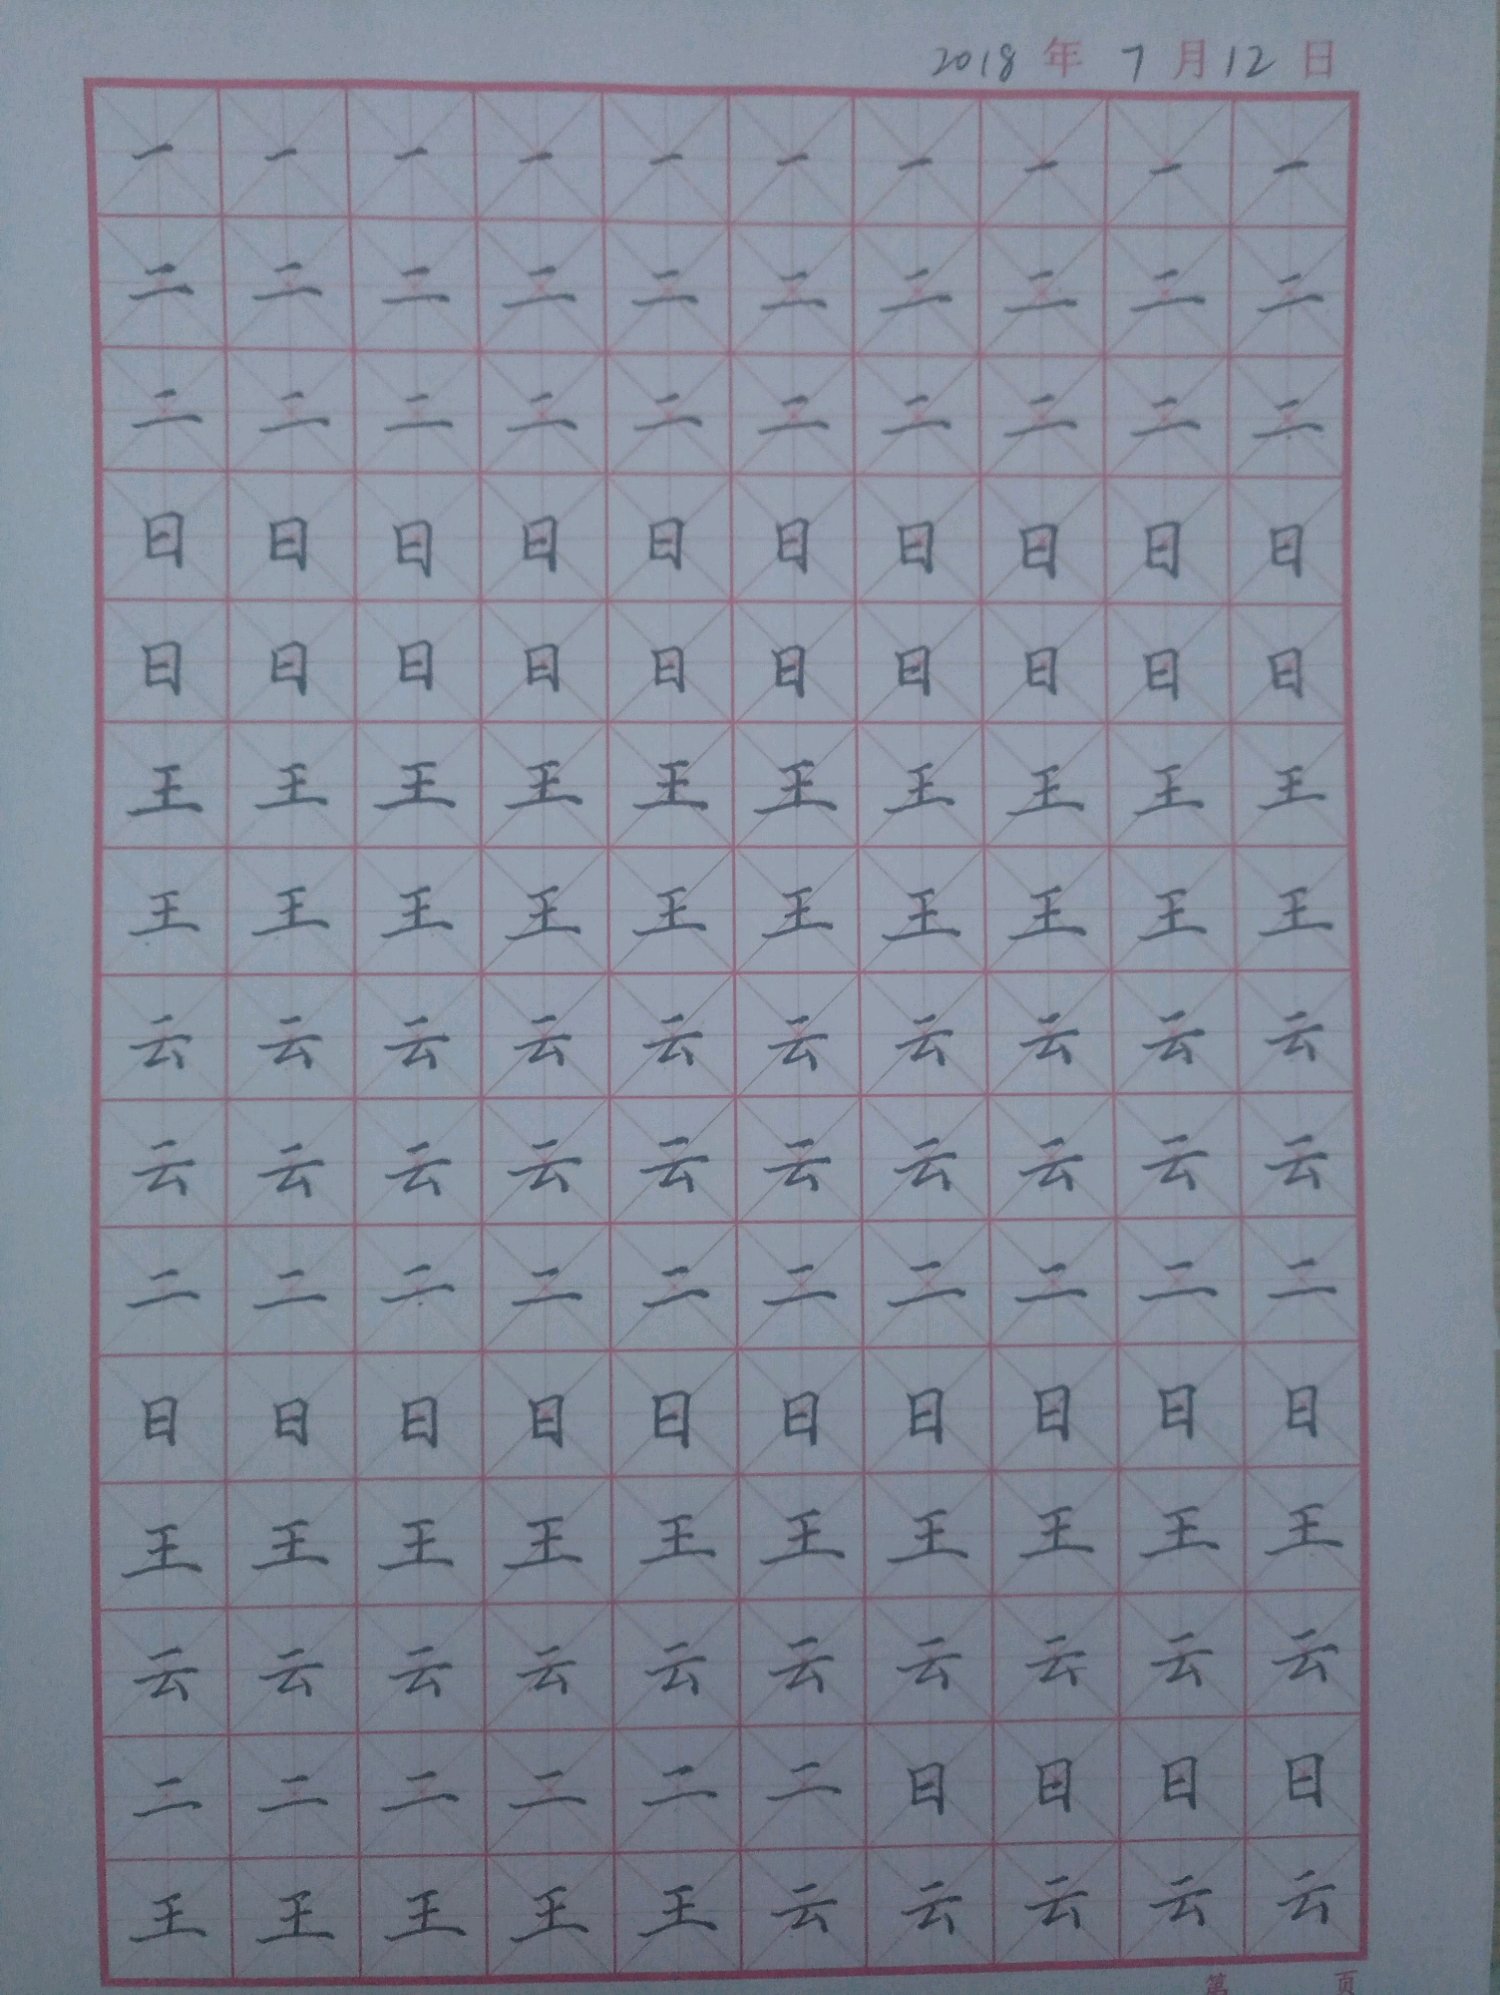 2018 年 7 月 12 日
一 一 一 一 一 一 一 一 一 一
二 二 二 二 二 二 二 二 二 二
二 二 二 二 二 二 二 二 二 二
日 日 日 日 日 日 日 日 日 日
日 日 日 日 日 日 日 日 日 日
王 王 王 王 王 王 王 王 王 王
王 王 王 王 王 王 王 王 王 王
云 云 云 云 云 云 云 云 云 云
云 云 云 云 云 云 云 云 云 云
二 二 二 二 二 二 二 二 二 二
日 日 日 日 日 日 日 日 日 日
王 王 王 王 王 王 王 王 王 王
云 云 云 云 云 云 云 云 云 云
二 二 二 二 二 二 日 日 日 日
王 王 王 王 王 云 云 云 云 云
第 页